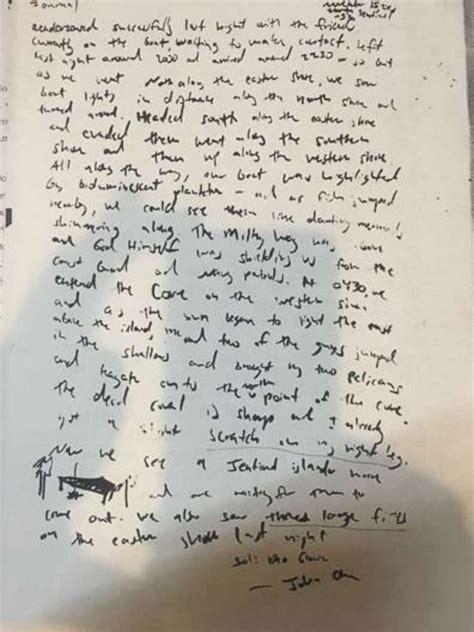 Journal
rendezvoused successfully last night with the friend
currently on the boat, waiting to make contact. left
last night around 2000 and arrived around 2230 - so but
as we went North along the eastern shore, we saw
boat lights in distance along the north shore and
turned around. Headed south along the eastern shore
and evaded them went along the southern
shore and then up along the western shore
All along the way, our boat was highlighted
by bioluminescent plankton - and as fish jumped
nearby, we could see them like darting mermaids
shimmering along. The Milky Way was above
and God Himself was shielding us from the
Coast Guard and navy patrols. At 0430, we
entered the Cove on the western side
and as the sun began to light the east
above the island, me and two of the guys jumped
in the shallows and brought my two pelicans
and kayak onto the north point of the cove.
the dead coral is sharp and I already
got a slight scratch on my right leg.
Now we see a Sentinel islander home
and are waiting for them to
come out. We also saw three large fires
on the eastern shore last night
Soli Deo Gloria
— John